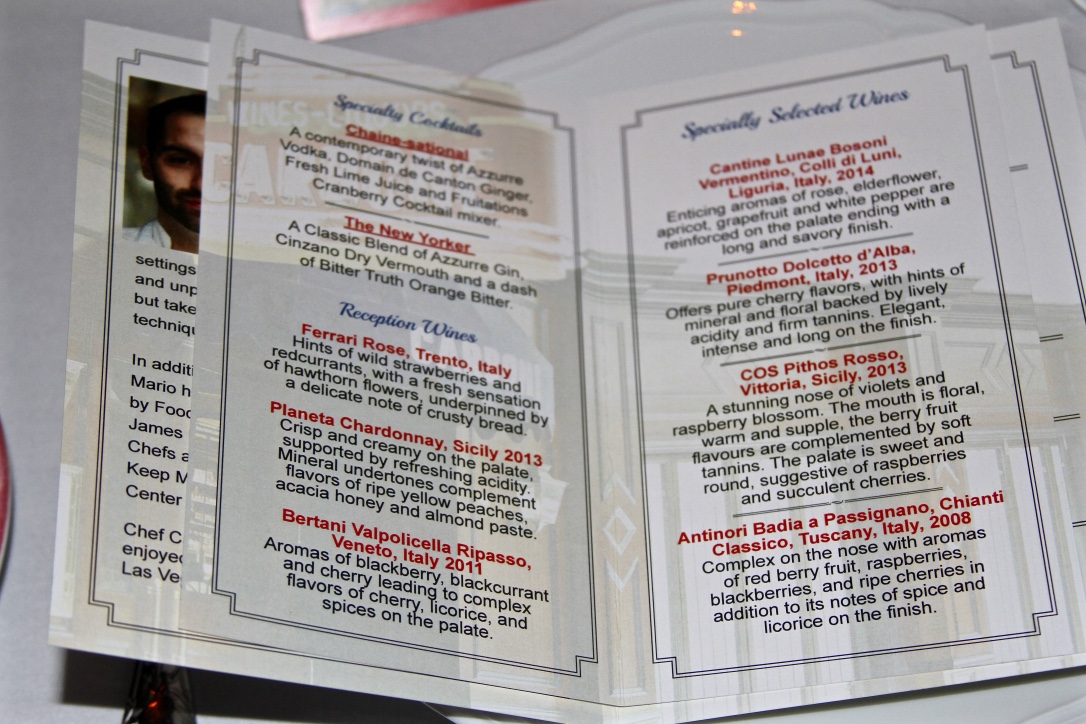 settings
and unp
but take
techniqu
In additi
Mario h
by Food
James
Chefs a
Keep M
Center
Chef C
enjoyed
Las Ve
WINES-LIQUORS
Specialty Cocktails
Chaine-sational
A contemporary twist of Azzurre
Vodka, Domain de Canton Ginger,
Fresh Lime Juice and Fruitations
Cranberry Cocktail mixer.
The New Yorker
A Classic Blend of Azzurre Gin,
Cinzano Dry Vermouth and a dash
of Bitter Truth Orange Bitter.
Reception Wines
Ferrari Rose, Trento, Italy
Hints of wild strawberries and
redcurrants, with a fresh sensation
of hawthorn flowers, underpinned by
a delicate note of crusty bread.
Planeta Chardonnay, Sicily 2013
Crisp and creamy on the palate,
supported by refreshing acidity.
Mineral undertones complement
flavors of ripe yellow peaches,
acacia honey and almond paste.
Bertani Valpolicella Ripasso,
Veneto, Italy 2011
Aromas of blackberry, blackcurrant
and cherry leading to complex
flavors of cherry, licorice, and
spices on the palate.
Specially Selected Wines
Cantine Lunae Bosoni
Vermentino, Colli di Luni,
Liguria, Italy, 2014
Enticing aromas of rose, elderflower,
apricot, grapefruit and white pepper are
reinforced on the palate ending with a
long and savory finish.
Prunotto Dolcetto d'Alba,
Piedmont, Italy, 2013
Offers pure cherry flavors, with hints of
mineral and floral backed by lively
acidity and firm tannins. Elegant,
intense and long on the finish.
COS Pithos Rosso,
Vittoria, Sicily, 2013
A stunning nose of violets and
raspberry blossom. The mouth is floral,
warm and supple, the berry fruit
flavours are complemented by soft
tannins. The palate is sweet and
round, suggestive of raspberries
and succulent cherries.
Antinori Badia a Passignano, Chianti
Classico, Tuscany, Italy, 2008
Complex on the nose with aromas
of red berry fruit, raspberries,
blackberries, and ripe cherries in
addition to its notes of spice and
licorice on the finish.